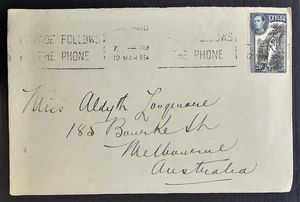 TRADE FOLLOWS
THE PHONE
7 - PM
12 MAR 39
TRADE FOLLOWS
THE PHONE
CEYLON
Miss Aldyth Longmore
183 Bourke St
Melbourne
Australia